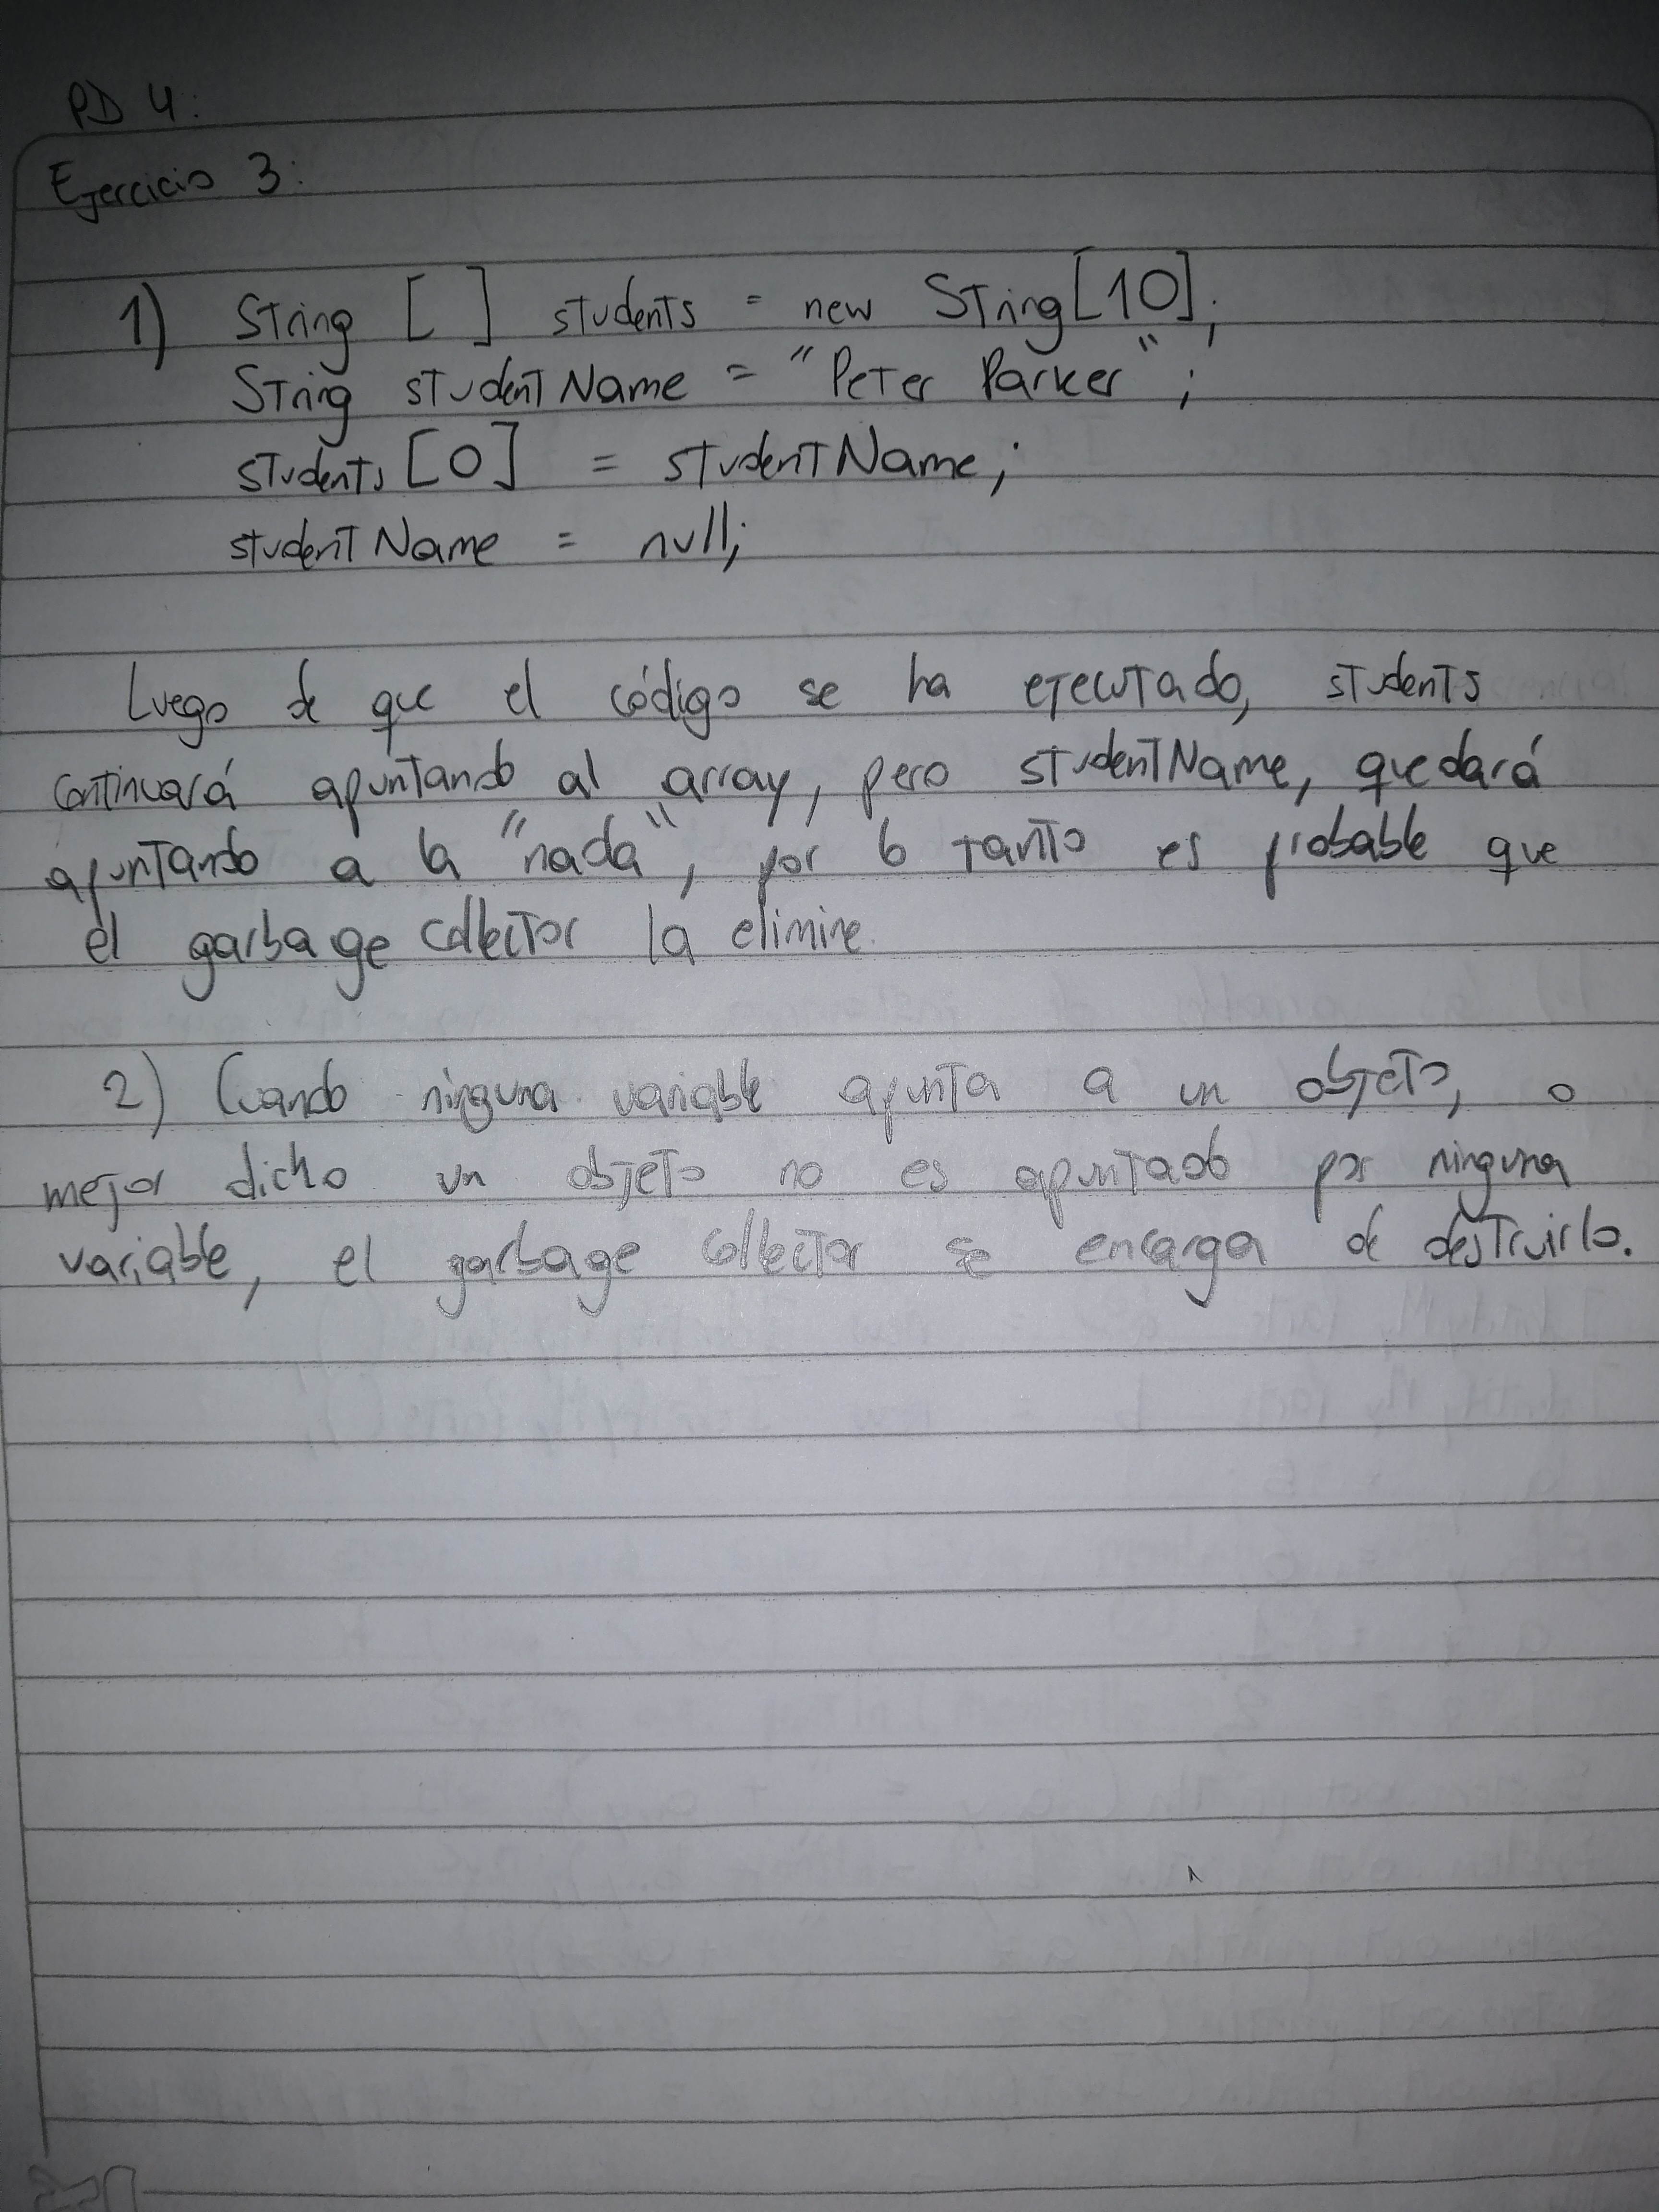 PD 4:
Ejercicio 3:
1) String [ ] students = new String[10];
String studentName = "Peter Parker";
students [0] = studentName;
studentName = null;
Luego de que el código se ha ejecutado, students
continuará apuntando al array, pero studentName, quedará
apuntando a la "nada", por lo tanto es probable que
el garbage collector la elimine.
2) Cuando ninguna variable apunta a un objeto, o
mejor dicho un objeto no es apuntado por ninguna
variable, el garbage collector se encarga de destruirlo.